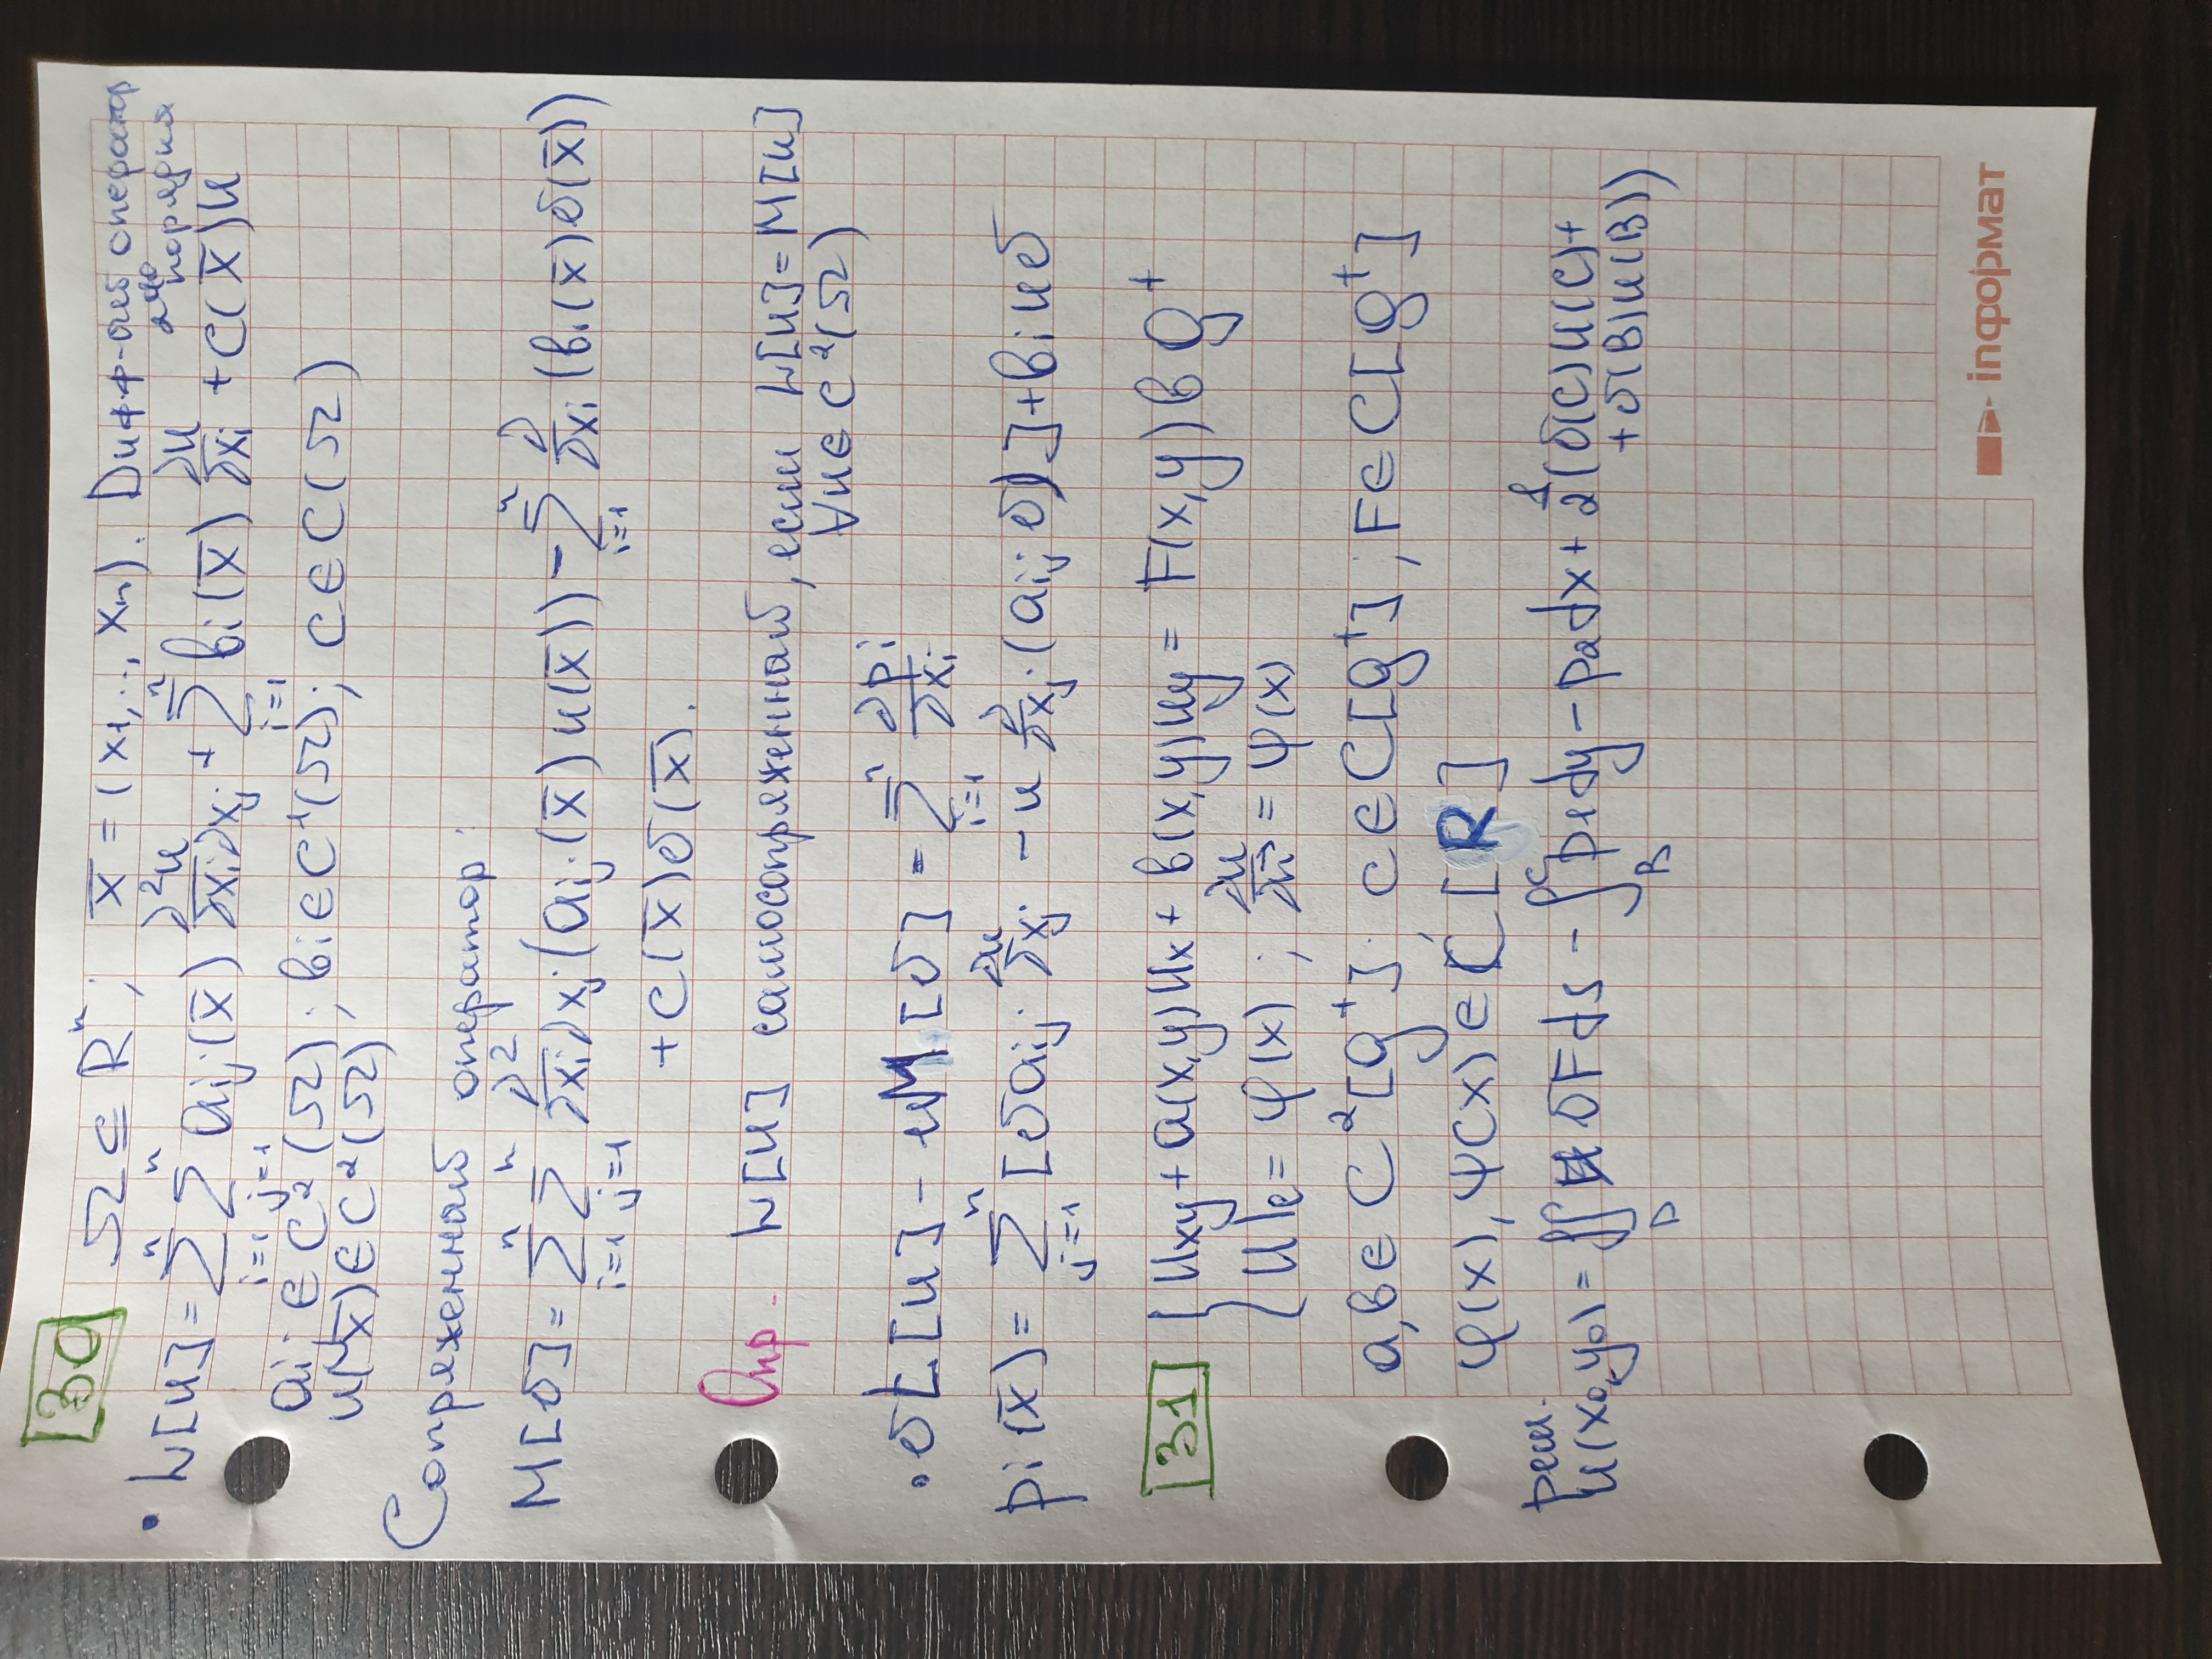 30 Ω ⊆ Rⁿ; x̄ = (x₁,..., xₙ). Дифф-ый оператор 2го порядка
• L[u] = ∑ⁿᵢ₌₁ ∑ⁿⱼ₌₁ aᵢⱼ(x̄) ∂²u/∂xᵢ∂xⱼ + ∑ⁿᵢ₌₁ bᵢ(x̄) ∂u/∂xᵢ + C(x̄)u
aᵢⱼ ∈ C²(Ω); bᵢ ∈ C¹(Ω); C ∈ C(Ω)
u(x̄) ∈ C²(Ω)
Сопряженный оператор:
M[v] = ∑ⁿᵢ₌₁ ∑ⁿⱼ₌₁ ∂²/∂xᵢ∂xⱼ (aᵢⱼ(x̄) u(x̄)) - ∑ⁿᵢ₌₁ ∂/∂xᵢ (bᵢ(x̄)v(x̄))
+ C(x̄)v(x̄).
Опр. L[u] самосопряженный, если L[u] = M[u]
∀u ∈ C²(Ω)
• vL[u] - uM[v] = ∑ⁿᵢ₌₁ ∂pᵢ/∂xᵢ
pᵢ(x̄) = ∑ⁿⱼ₌₁ [vaᵢⱼ ∂u/∂xⱼ - u ∂/∂xⱼ (aᵢⱼ v)] + bᵢuv
31 { uxy + a(x,y)ux + b(x,y)uy = F(x,y) в g⁺
u|ₑ = φ(x); ∂u/∂n̄ = ψ(x)
a,b ∈ C²[g⁺]; c ∈ C[g⁺]; F ∈ C[g⁺]
φ(x), ψ(x) ∈ C[R]
реш.
u(x₀,y₀) = ∬_D vFds - ∫_B^C p₁dy - p₂dx + 1/2 (v(C)u(C) +
+ v(B)u(B))
inформат